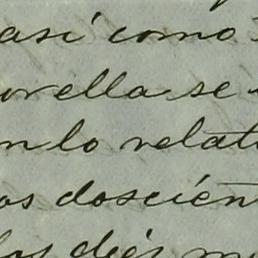 así como
orella se
n lo relat
os doscien
los diez m